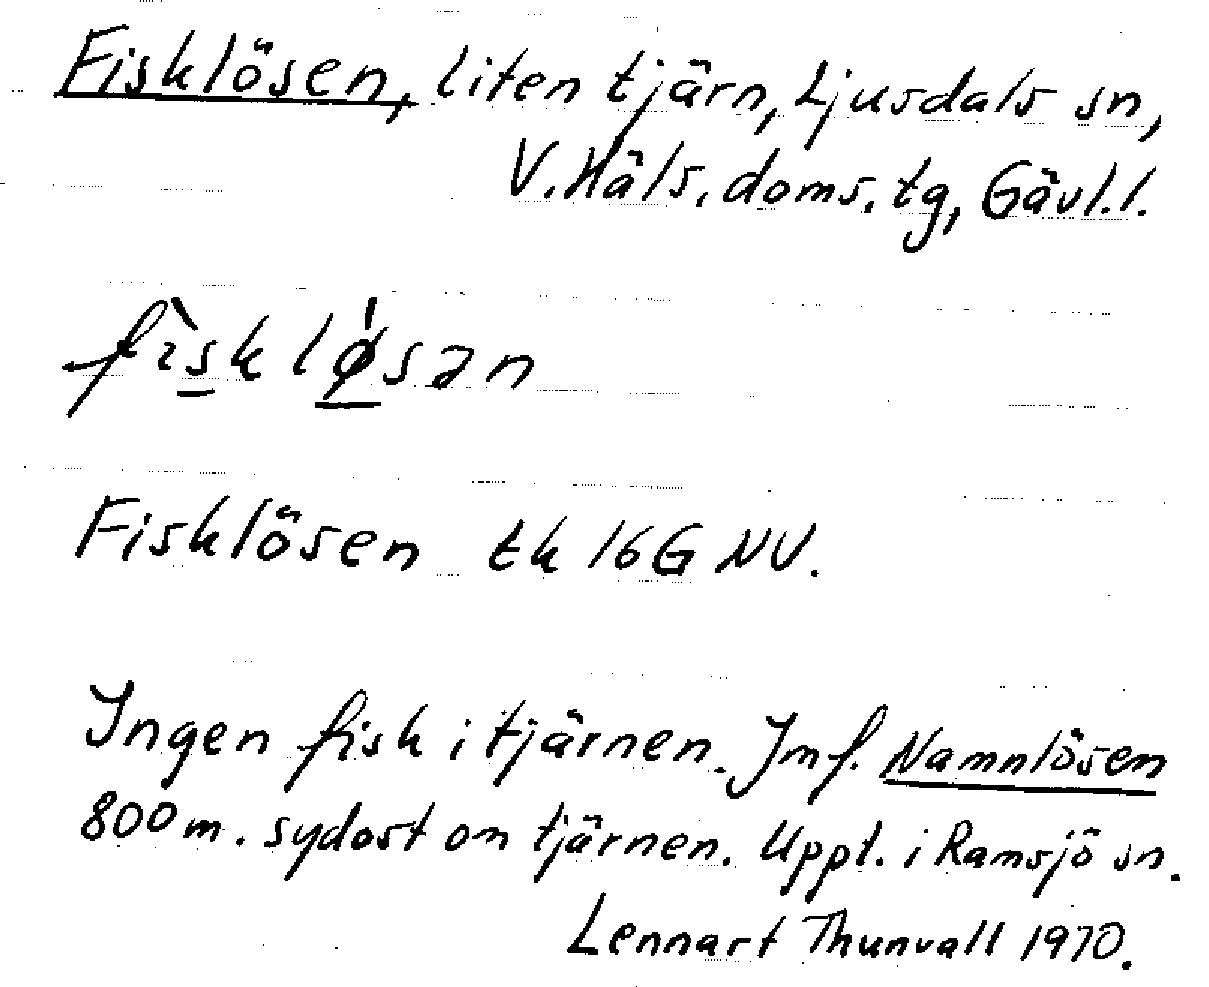 Fisklösen, liten tjärn, Ljusdals sn,
V. Häls. doms. tg, Gävl. l.
fìsklø̍sən
Fisklösen tk 16G NV.
Ingen fisk i tjärnen. Jmf. Namnlösen
800 m. sydost om tjärnen. Uppt. i Ramsjö sn.
Lennart Thunvall 1970.